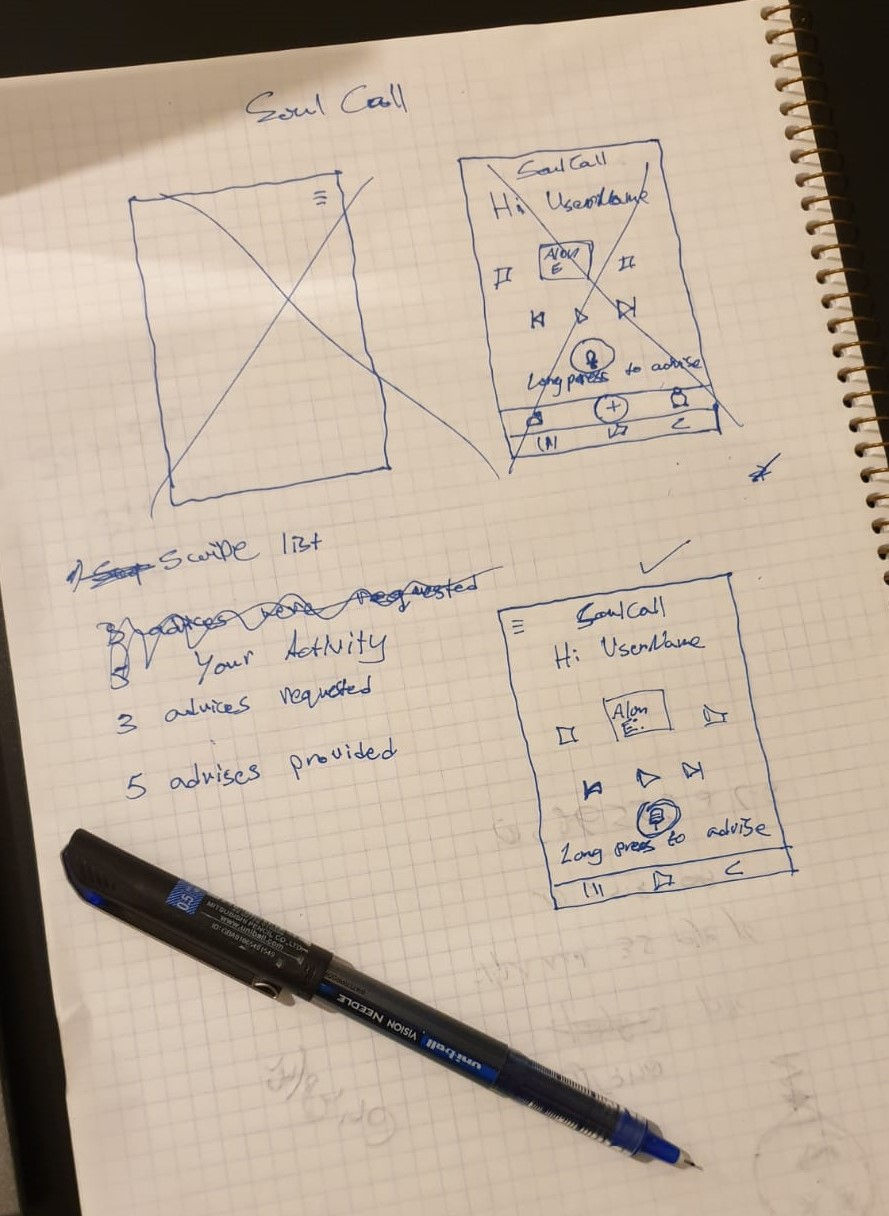 Soul Call
SoulCall
Hi UserName
Alon
E
Long press to advise
1) Swipe list
3 advices were requested
Your Activity
3 advices requested
5 advises provided
SoulCall
Hi UserName
Alon
E.
Long press to advise
0.5
MITSUBISHI PENCIL CO., LTD
www.uniball.com
VISION NEEDLE
uniball